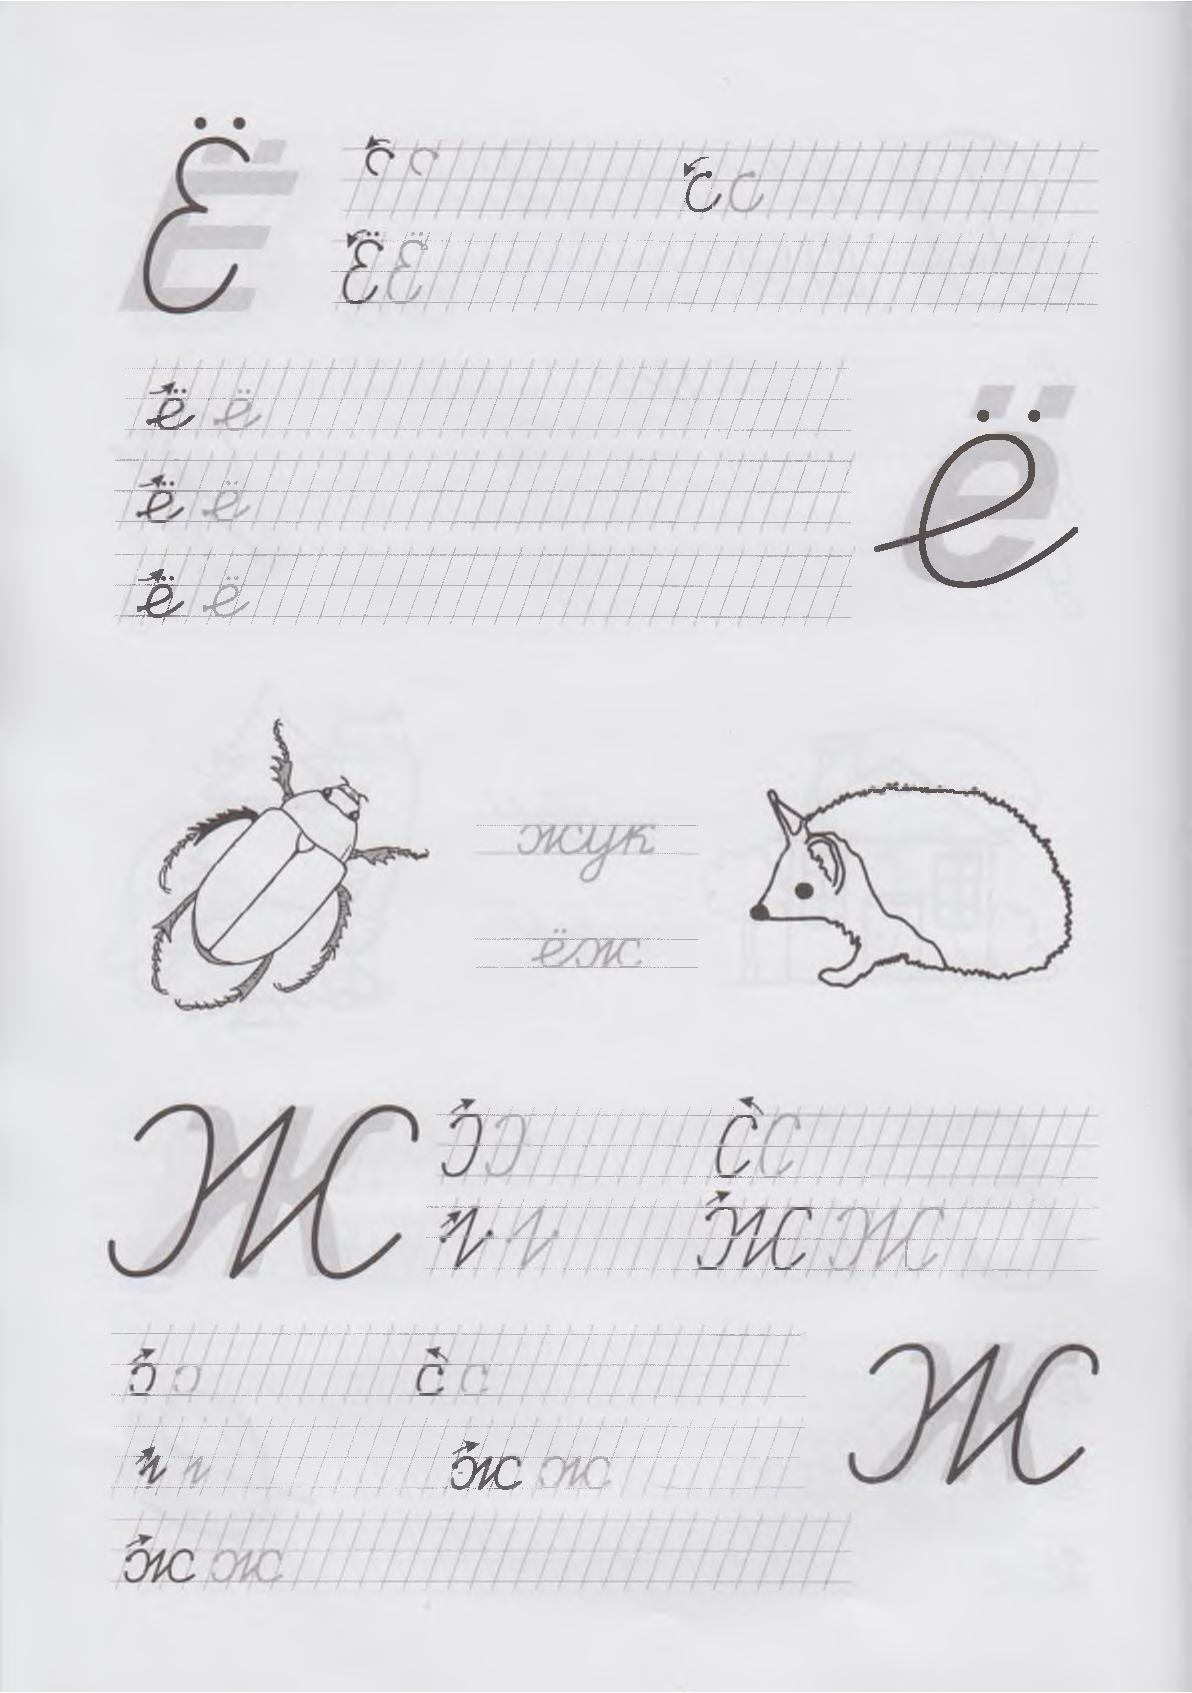 Ё
Ё Ё
ё ё
ё ё
ё
ё ё
жук
ёж
Ж
Ж Ж
ж
ж ж
ж ж